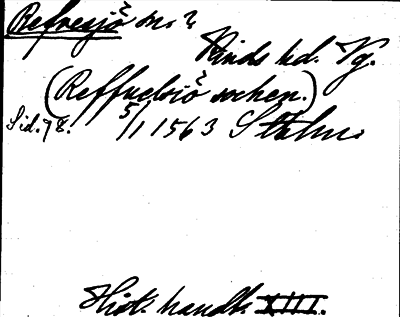 Refvesjö sn. ?
Kinds hd. Vg.
(Reffuelsiö sochen.)
Sid. 78. 5/1 1563 Sthlm.
Hist. handl. XIII.